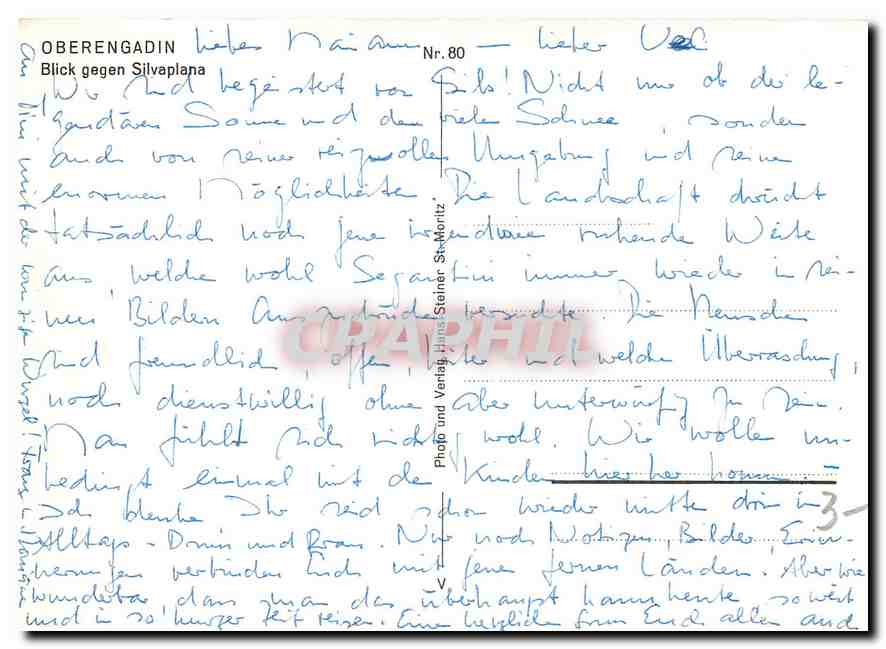 OBERENGADIN
Blick gegen Silvaplana
Nr. 80
liebes — lieber
Wir sind begeistert von Sils! Nicht nur ob der le-
gendären Sonne und dem vielen Schnee, sondern
auch von seiner reizvollen Umgebung und seinen
enormen Möglichkeiten. Die Landschaft drückt
tatsächlich noch jene irgendwie ruhende Weite
aus, welche wohl Segantini immer wieder in sei-
nen Bildern auszudrücken versuchte. Die Menschen
sind freundlich, offen, und welche Überraschung,
noch dienstwillig ohne aber unterwürfig zu sein.
Man fühlt sich richtig wohl. Wir wollen un-
bedingt einmal mit den Kindern hierher kommen. –
Ich denke Ihr seid schon wieder mitten drin im
Alltags-Drum und Dran. Nur noch Notizen, Bilder, Erin-
nerungen verbinden Euch mit jenen fernen Ländern. Aber wie
wunderbar, dass man das überhaupt kann heute so weit
und in so kurzer Zeit reisen. Eine herzlichen Euch allen und
au Dini mit der Wurzel! Franz + Monique
Photo und Verlag Hans Steiner St. Moritz
CPAPHIL
3-